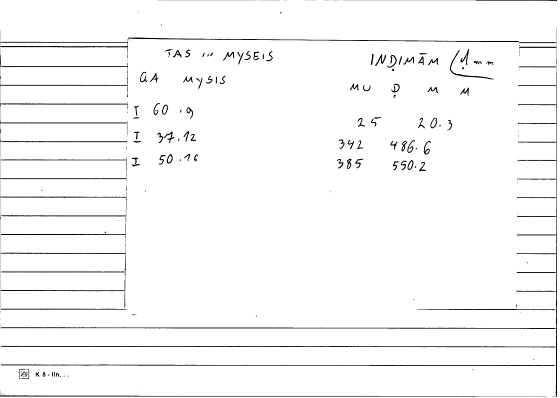 TAS in MYSEIS INDIMĀM
QA MYSIS MU Ḍ M M
I 60.9 25 20.3
I 37.12 342 486.6
I 50.16 385 550.2
K 8 - IIn. . .